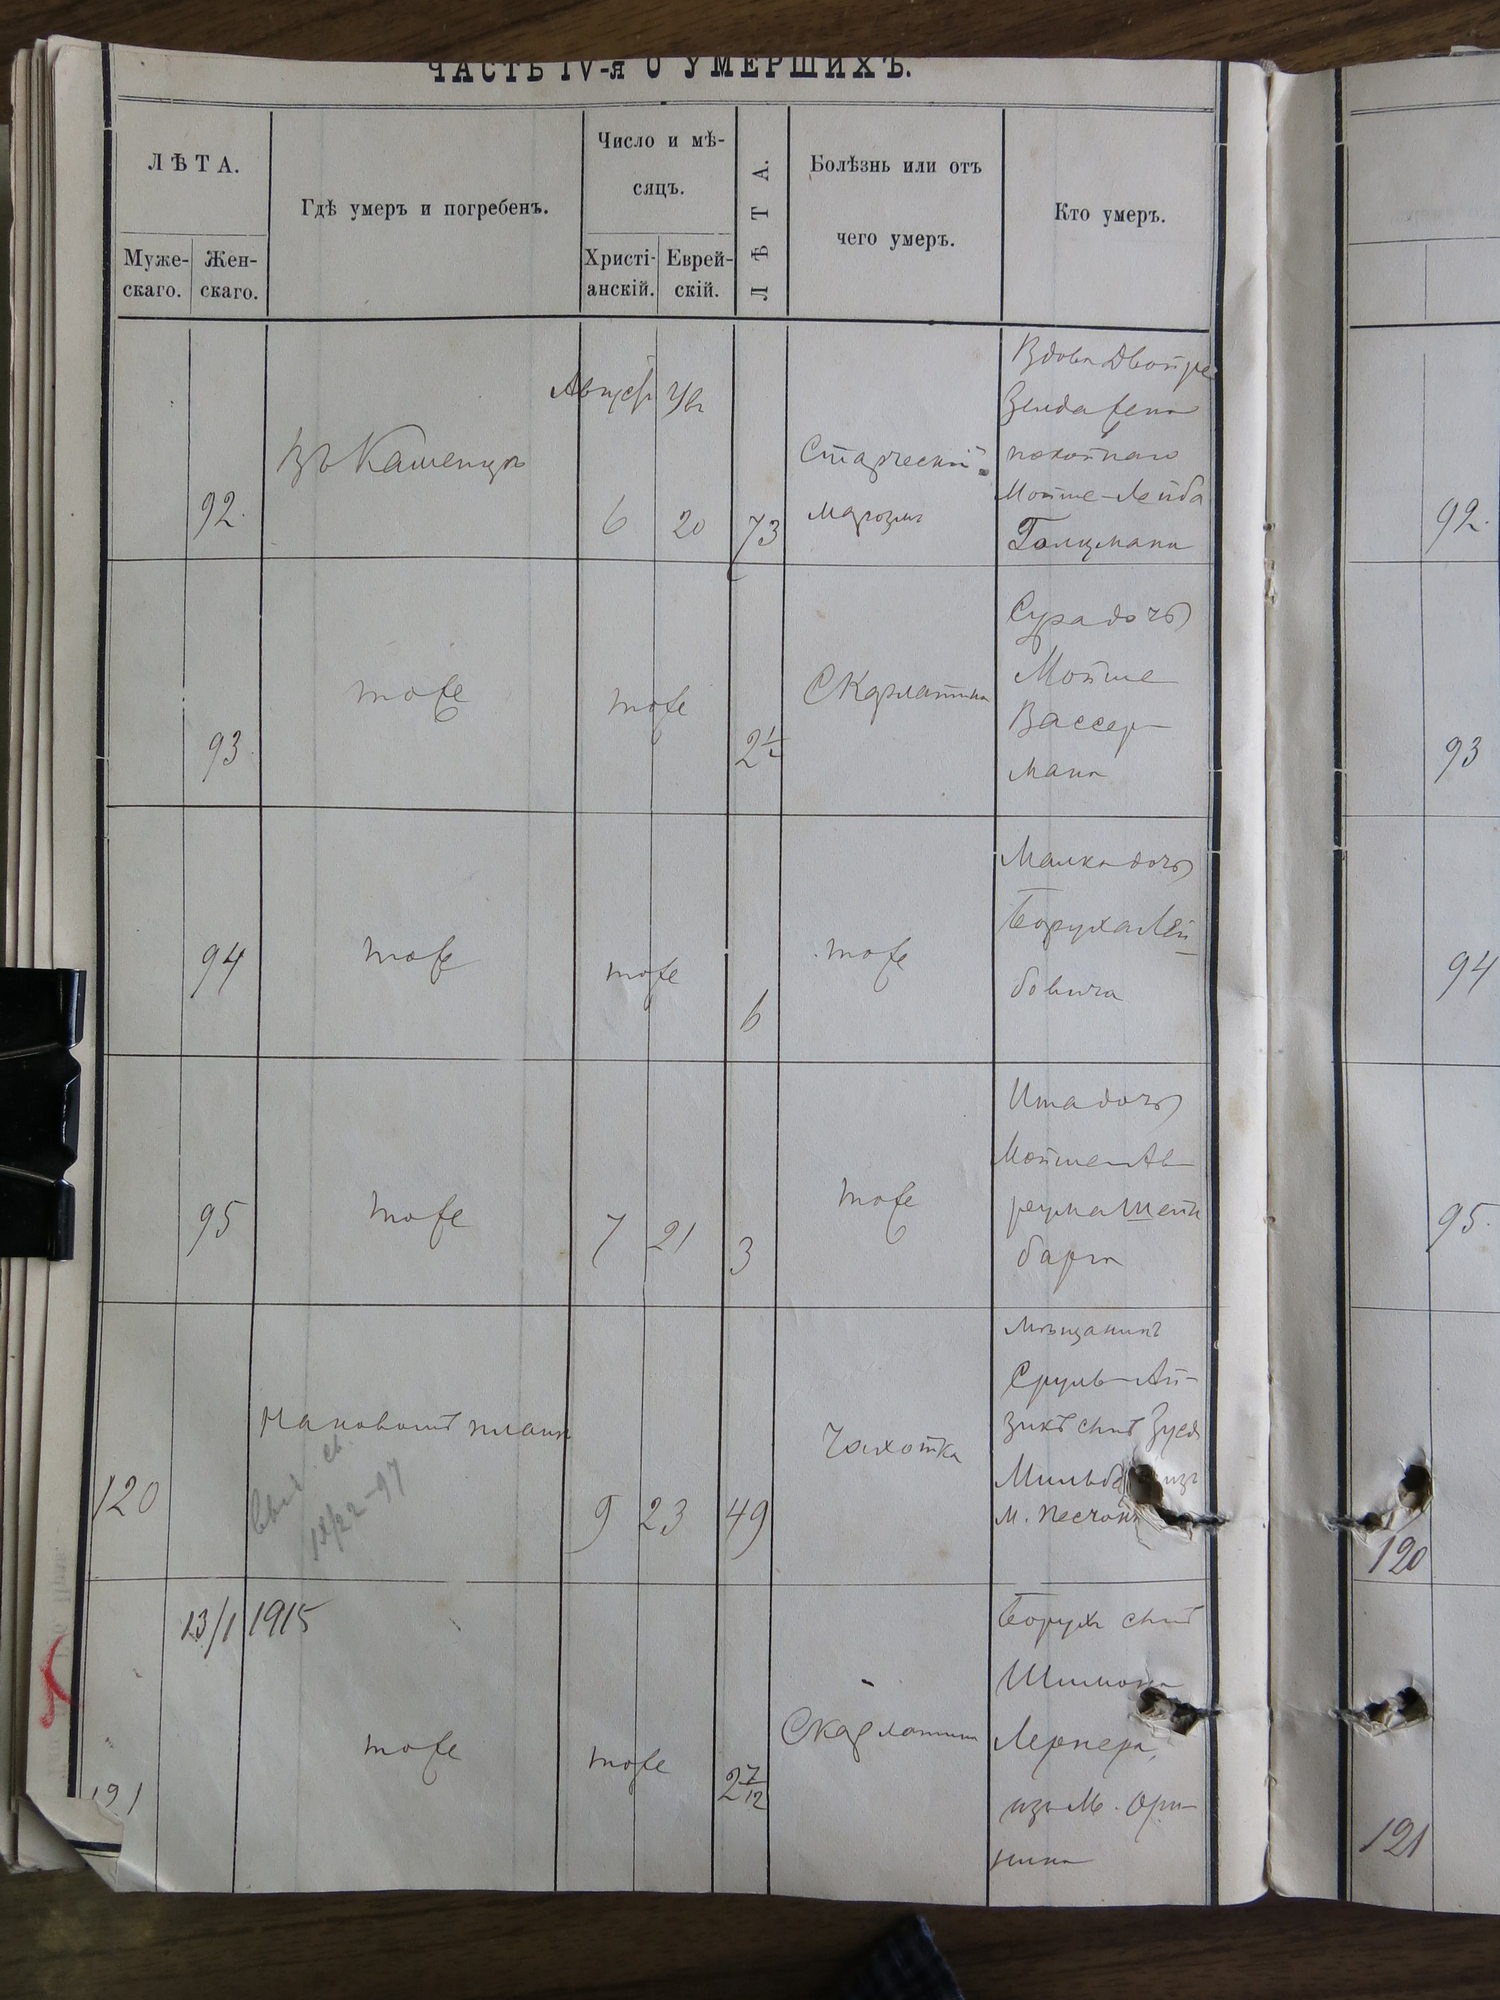 ЧАСТЬ IV-я О УМЕРШИХЪ.
ЛѢТА.
Муже-
скаго.
Жен-
скаго.
Гдѣ умеръ и погребенъ.
Число и мѣ-
сяцъ.
Христі-
анскій.
Еврей-
скій.
ЛѢТА.
Болѣзнь или отъ
чего умеръ.
Кто умеръ.
92.
Въ Каменцѣ
Августъ
6
20
73
Старческій
маразмъ
Вдова Двойра
Зельда жена
покойнаго
Мойше-Лейба
Голцмана
92.
93
тоже
тоже
2 1/2
Скарлатина
Сура дочь
Мойше
Вассер-
мана
93
94
тоже
тоже
6
тоже
Малка дочь
Боруха Лей-
бовича
94
95
тоже
7
21
3
тоже
Ита дочь
Мойше-Ав-
рума Штейн
барга
95.
120
9
23
49
Чахотка
Мѣщанинъ
Сруль-Ай-
зикъ сынъ Зуся
изъ
м.
120
18/22-97
13/1 1915
121
тоже
тоже
2 7/12
Скарлатина
Борухъ сынъ
Шимона
Лернера,
изъ м. Ори-
нина
121